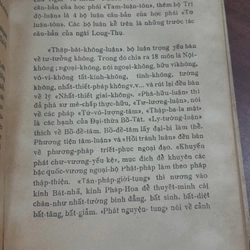 căn-bản của học phái «Tam-luân-tôn», thêm bộ Trí
độ-luận, là bốn bộ luận căn-bản của học phái «Tứ
luận-tôn». Các bộ luận kể trên là những trước tác
căn-bản của ngài Long-Thụ.
«Thập-bát-không-luận», bộ luận trọng yếu bàn
về tư-tưởng không. Trong đó chia ra 18 môn là Nội-
không, ngoại-không, nội ngoại-không, không-không,
vô-vi-không tất-kinh-không, tính-không, tướng
không, nhất-thiết-pháp-không v.v... và thuyết minh về
lý «Nhất-thiết giai-không». «Phá-tà-luận», thì đả
phá sự mê-chấp thực-hữu, «Tư-lương-luận», nói
về các pháp «Tư-vô-tướng, tâm», «Thập-ba-la mật»
là các hạnh của Đại-thừa Bồ-Tát. «Lý-tướng-luận»
thích về Bồ-đề-tâm, Bồ-đề-tâm lấy đại-bi làm thể.
Phương tiện tâm-luận» và «Hồi tránh luận» đều bàn
về phương-pháp triết-phục ngoại đạo. «Khuyến
phát chư-vương-yếu kệ», mục đích để khuyên các
bậc quốc-vương ngoại-hộ Phật-pháp nên làm theo
thập-thiện. «Tán-pháp-giới-tụng» thì nương vào
kinh Bát-nhã, kinh Pháp-Hoa để thuyết-minh cái
chân-như nhất-tướng bình đẳng, bất sinh, bất-diệt
bất tăng, bất giảm. «Phát nguyện-tụng» nói về cảnh